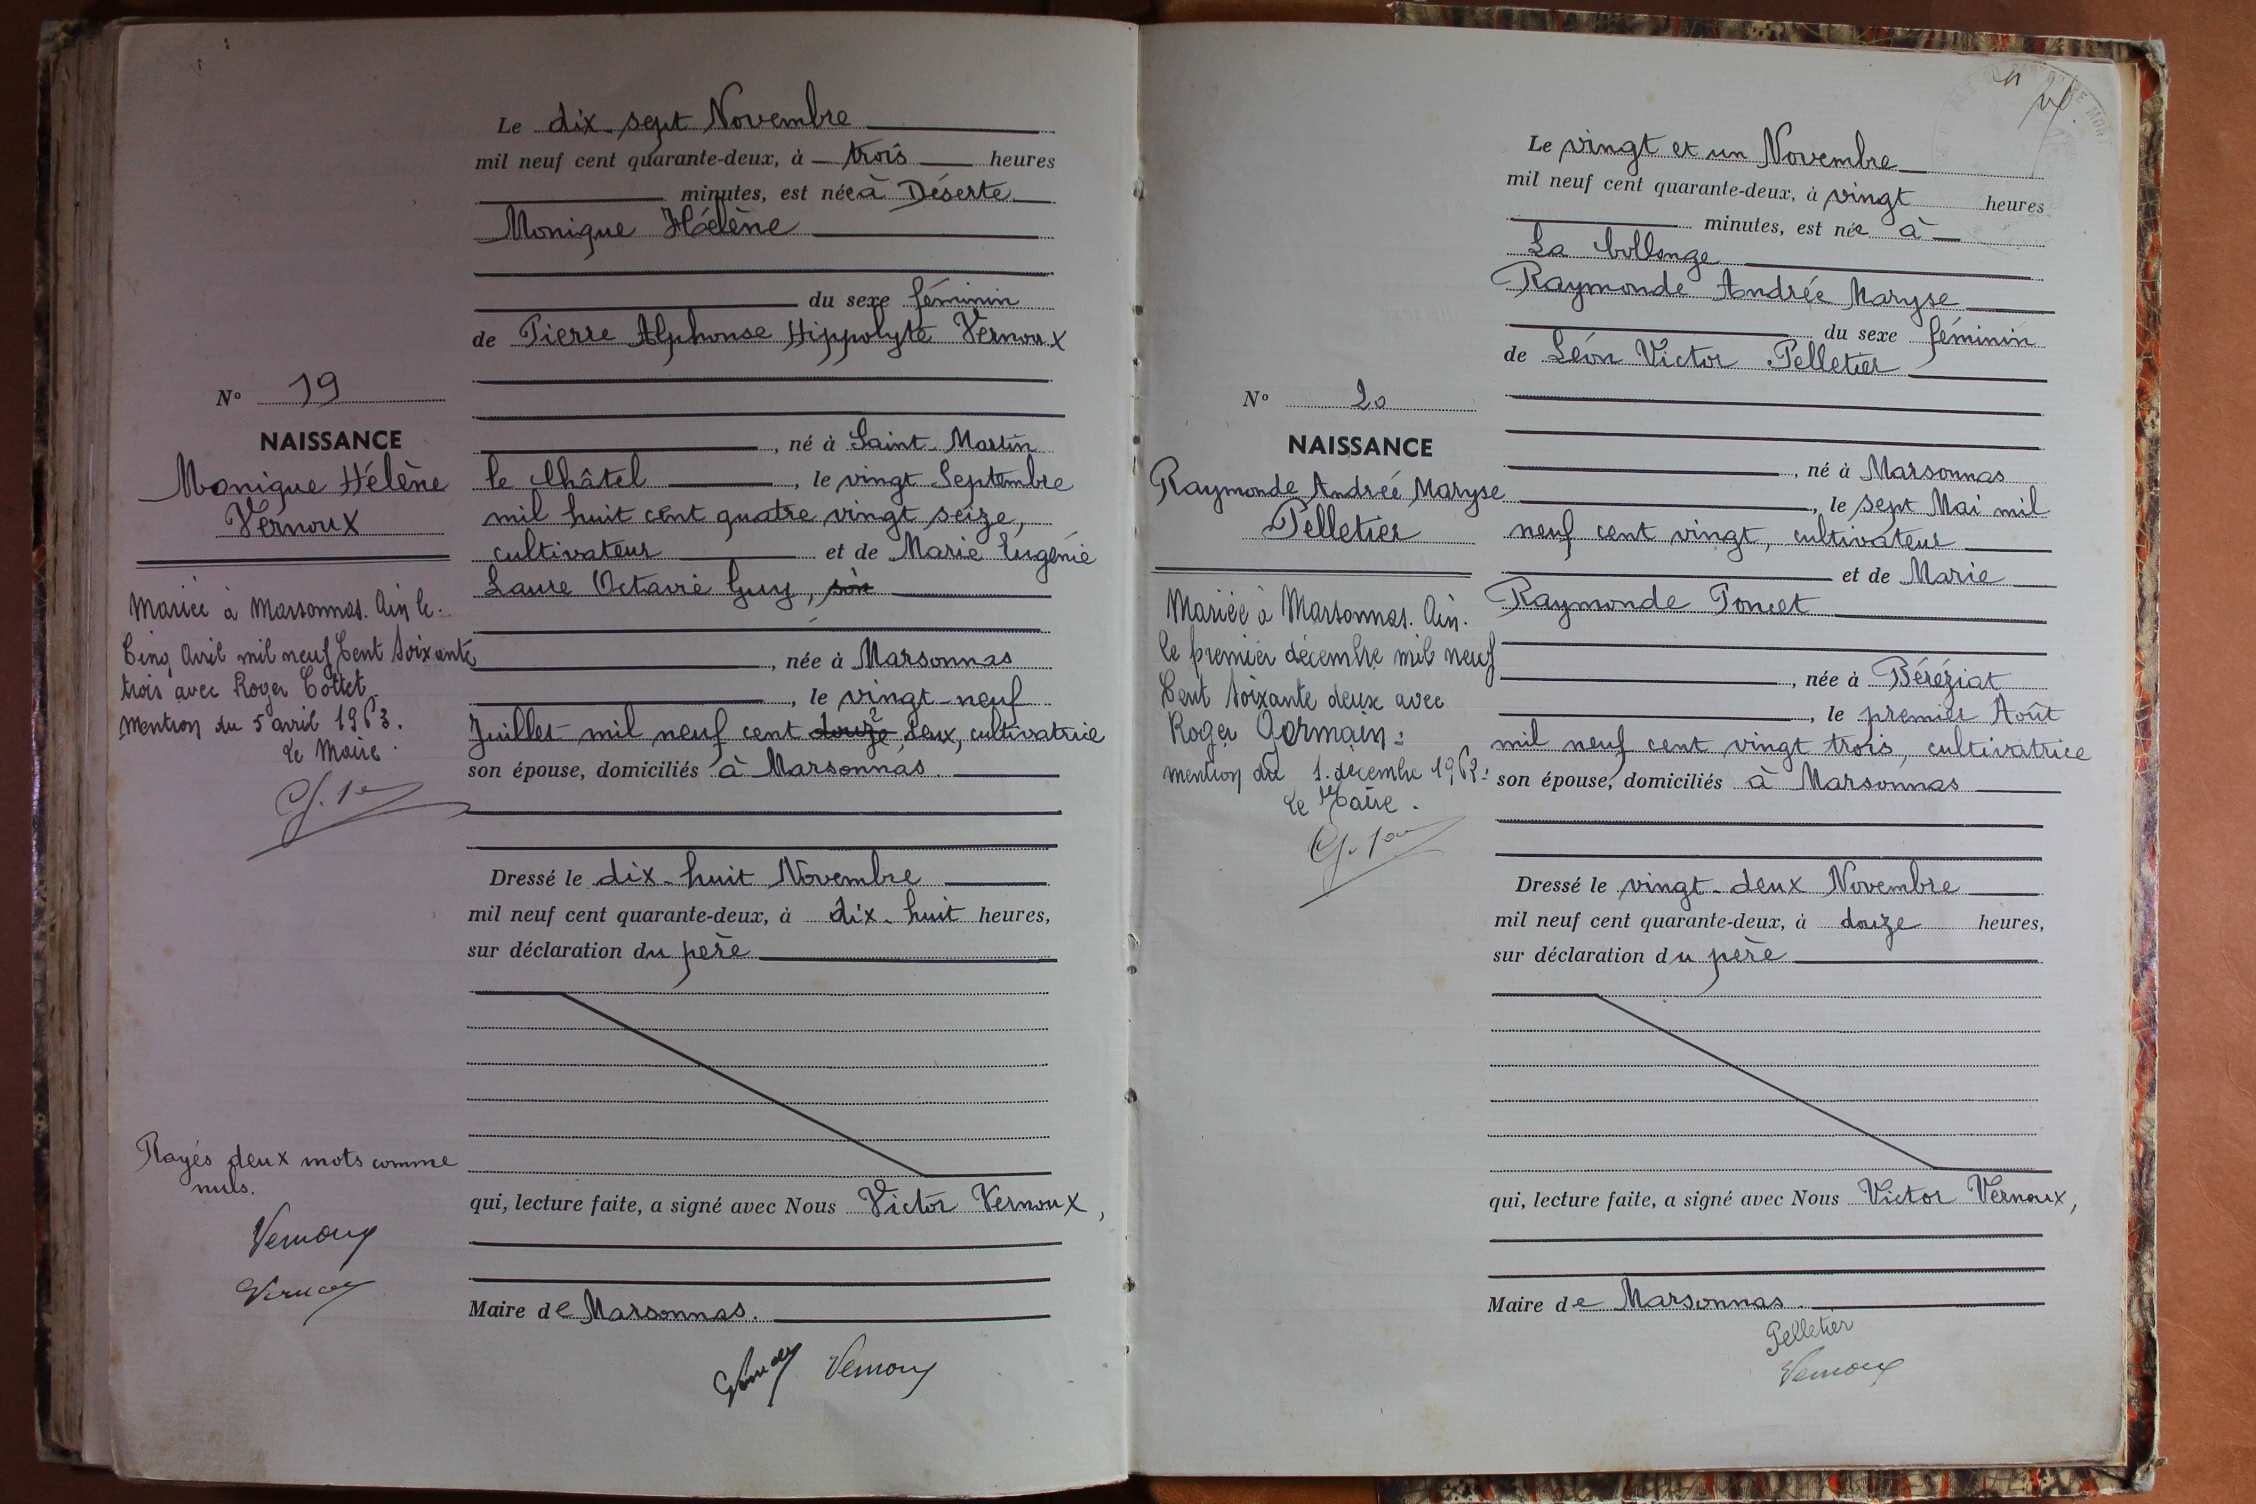 Le dix-sept Novembre
mil neuf cent quarante-deux, à trois heures
minutes, est née à Déserte
Monique Hélène
du sexe féminin
de Pierre Alphonse Hippolyte Vernoux
No 19
NAISSANCE
Monique Hélène
Vernoux
, né à Saint-Martin
le Châtel , le vingt Septembre
mil huit cent quatre vingt seize,
cultivateur et de Marie Eugénie
Laure Octavie Guy, son
, née à Marsonnas
, le vingt-neuf
Juillet mil neuf cent douze, deux, cultivatrice
son épouse, domiciliés à Marsonnas
Mariée à Marsonnas. Ain le
Cinq Avril mil neuf Cent Soixante
trois avec Roger Cottet.
Mention du 5 avril 1963.
Le Maire.
Dressé le dix-huit Novembre
mil neuf cent quarante-deux, à dix-huit heures,
sur déclaration du père
Rayés deux mots comme
nuls.
Vernoux
Vernoux
qui, lecture faite, a signé avec Nous Victor Vernoux,
Maire de Marsonnas.
Vernoux Vernoux
Le vingt et un Novembre
mil neuf cent quarante-deux, à vingt heures
minutes, est née à
La
Raymonde Andrée Maryse
du sexe féminin
de Léon Victor Pelletier
No 20
NAISSANCE
Raymonde Andrée Maryse
Pelletier
, né à Marsonnas
, le sept Mai mil
neuf cent vingt, cultivateur
et de Marie
Raymonde Poncet
, née à Béréziat
, le premier Août
mil neuf cent vingt trois, cultivatrice
son épouse, domiciliés à Marsonnas
Mariée à Marsonnas. Ain.
le premier décembre mil neuf
Cent Soixante deux avec
Roger Germain.
mention du 1. décembre 1962.
Le Maire.
Dressé le vingt-deux Novembre
mil neuf cent quarante-deux, à douze heures,
sur déclaration du père
qui, lecture faite, a signé avec Nous Victor Vernoux,
Maire de Marsonnas.
Pelletier
Vernoux